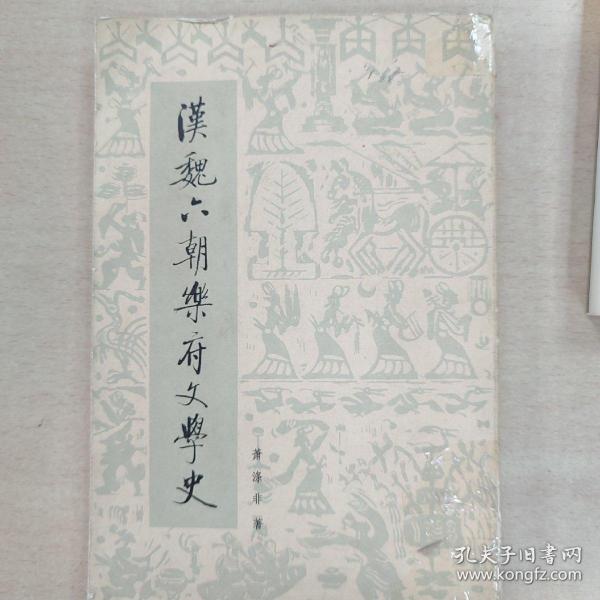 漢魏六朝樂府文學史
萧涤非著
孔夫子旧书网
www.kongfz.com